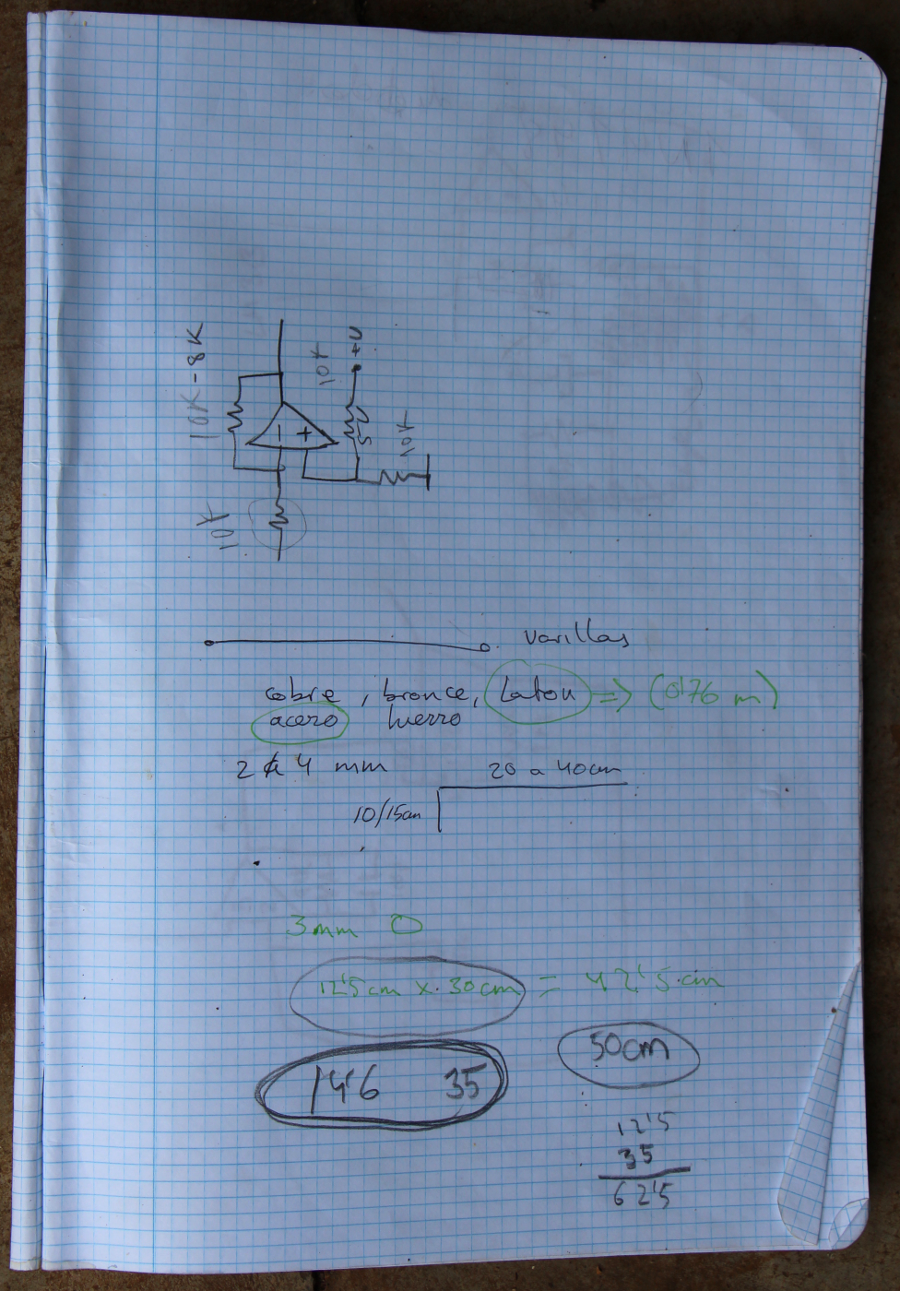 10K-8K
10K
+V
5V
10K
10K
varillas
cobre, bronce, Laton => (0'76 m)
acero hierro
2 a 4 mm 20 a 40cm
10/15cm
3mm O
12'5cm x 30cm = 42'5 cm
50cm
14'6 35
12'5
35
62'5